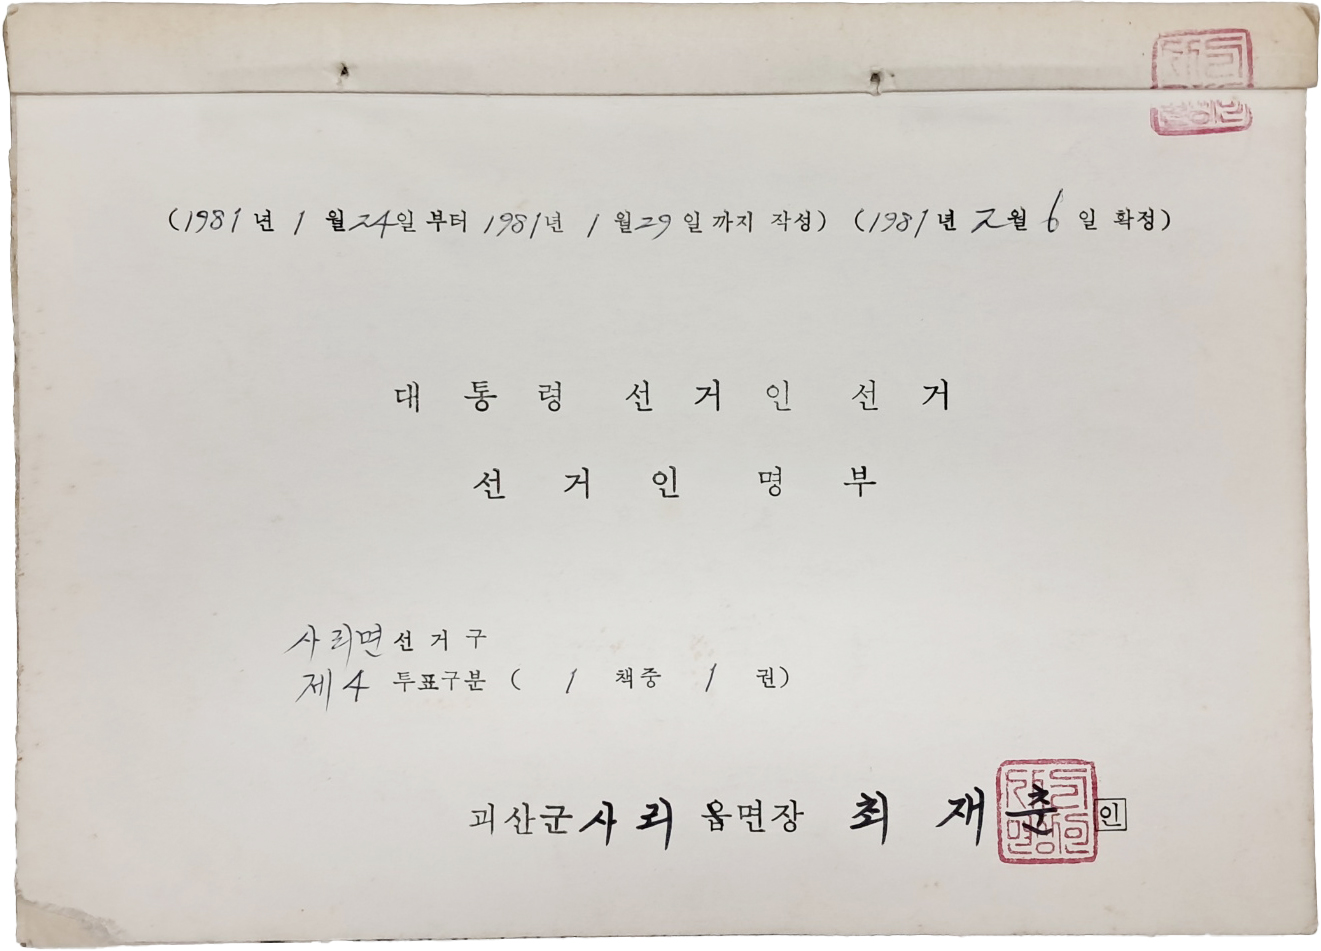 (1981년 1월 24일 부터 1981년 1월 29일 까지 작성) (1981년 2월 6일 확정)
대통령 선거인 선거
선거인 명부
사리면 선거구
제4 투표구분 ( 1 책중 1 권)
괴산군 사리 읍면장 최재춘 인